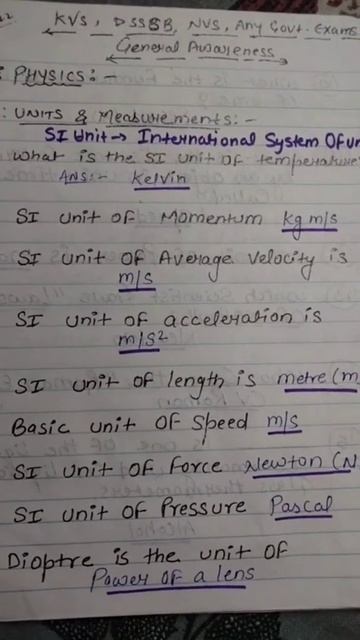 KVS, DSSSB, NVS, Any Govt. Exams
General Awareness
PHYSICS:-
UNITS & Measurements:-
SI Unit → International System Of
What is the SI unit of temperature
Ans:- Kelvin
SI unit of Momentum kg m/s
SI unit of Average velocity is
m/s
SI unit of acceleration is
m/s²
SI unit of length is metre (m
Basic unit of Speed m/s
SI unit of Force Newton (N
SI unit of Pressure Pascal
Dioptre is the unit of
Power of a lens